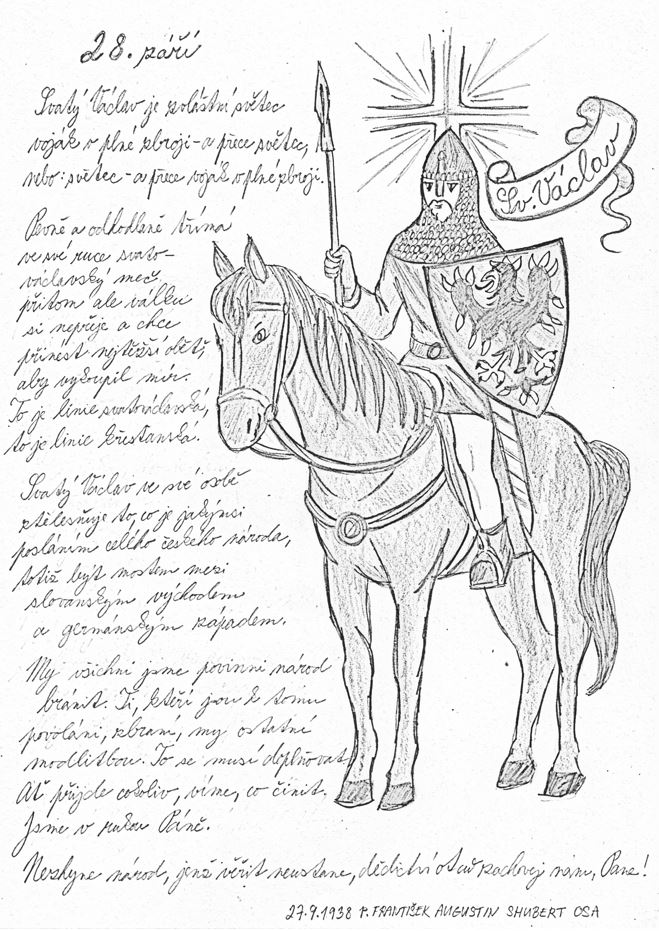 28. září
Svatý Václav je zvláštní světec
voják v plné zbroji - a přece světec,
nebo: světec - a přece voják v plné zbroji.
Pevně a odhodlaně třímá
ve své ruce svato-
václavský meč,
přitom ale válku
si nepřeje a chce
přinést nejtěžší oběť,
aby vykoupil mír.
To je linie svatováclavská,
to je linie křesťanská.
Svatý Václav ve své osobě
ztělesňuje to, co je jakýmsi
posláním celého českého národa,
totiž být mostem mezi
slovanským východem
a germánským západem.
My všichni jsme povinni národ
bránit. Ti, kteří jsou k tomu
povoláni, zbraní, my ostatní
modlitbou. To se musí doplňovat.
Ať přijde cokoliv, víme, co činit.
Jsme v rukou Páně.
Nezhyne národ, jenž věřit neustane, dědictví otců zachovej nám, Pane!
Sv. Václav
27.9.1938 P. FRANTIŠEK AUGUSTIN SHUBERT OSA